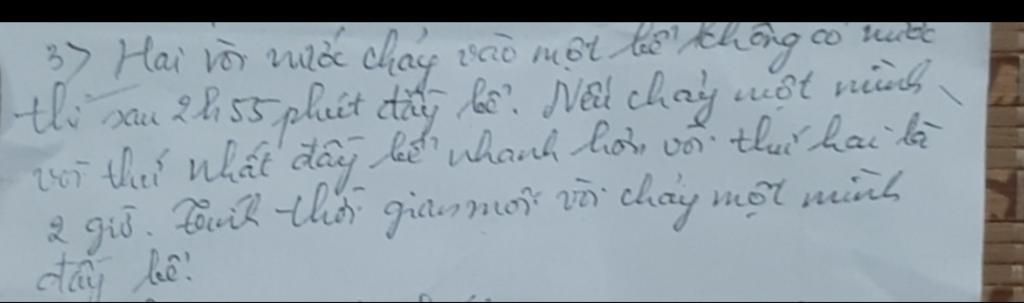 3> Hai vòi nước chảy vào một bể không có nước
thì sau 2h 55 phút đầy bể. Nếu chảy một mình
vòi thứ nhất đầy bể nhanh hơn vòi thứ hai là
2 giờ. Tính thời gian mỗi vòi chảy một mình
đầy bể.